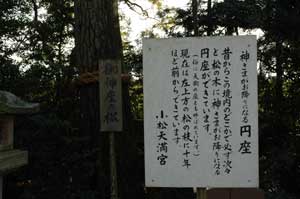 神さまがお降りになる円座
昔からこの境内のどこかで必ず次々
と松の木に神さまがお降りになる
円座ができています。
現在は左上方の松の枝に十年
ほど前からできています
小松天満宮
御神座の松